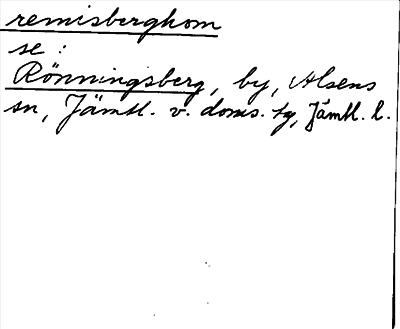 remisberghom
se:
Rönningsberg, by, Alsens
sn, Jämtl. v. doms. tg, Jämtl. l.